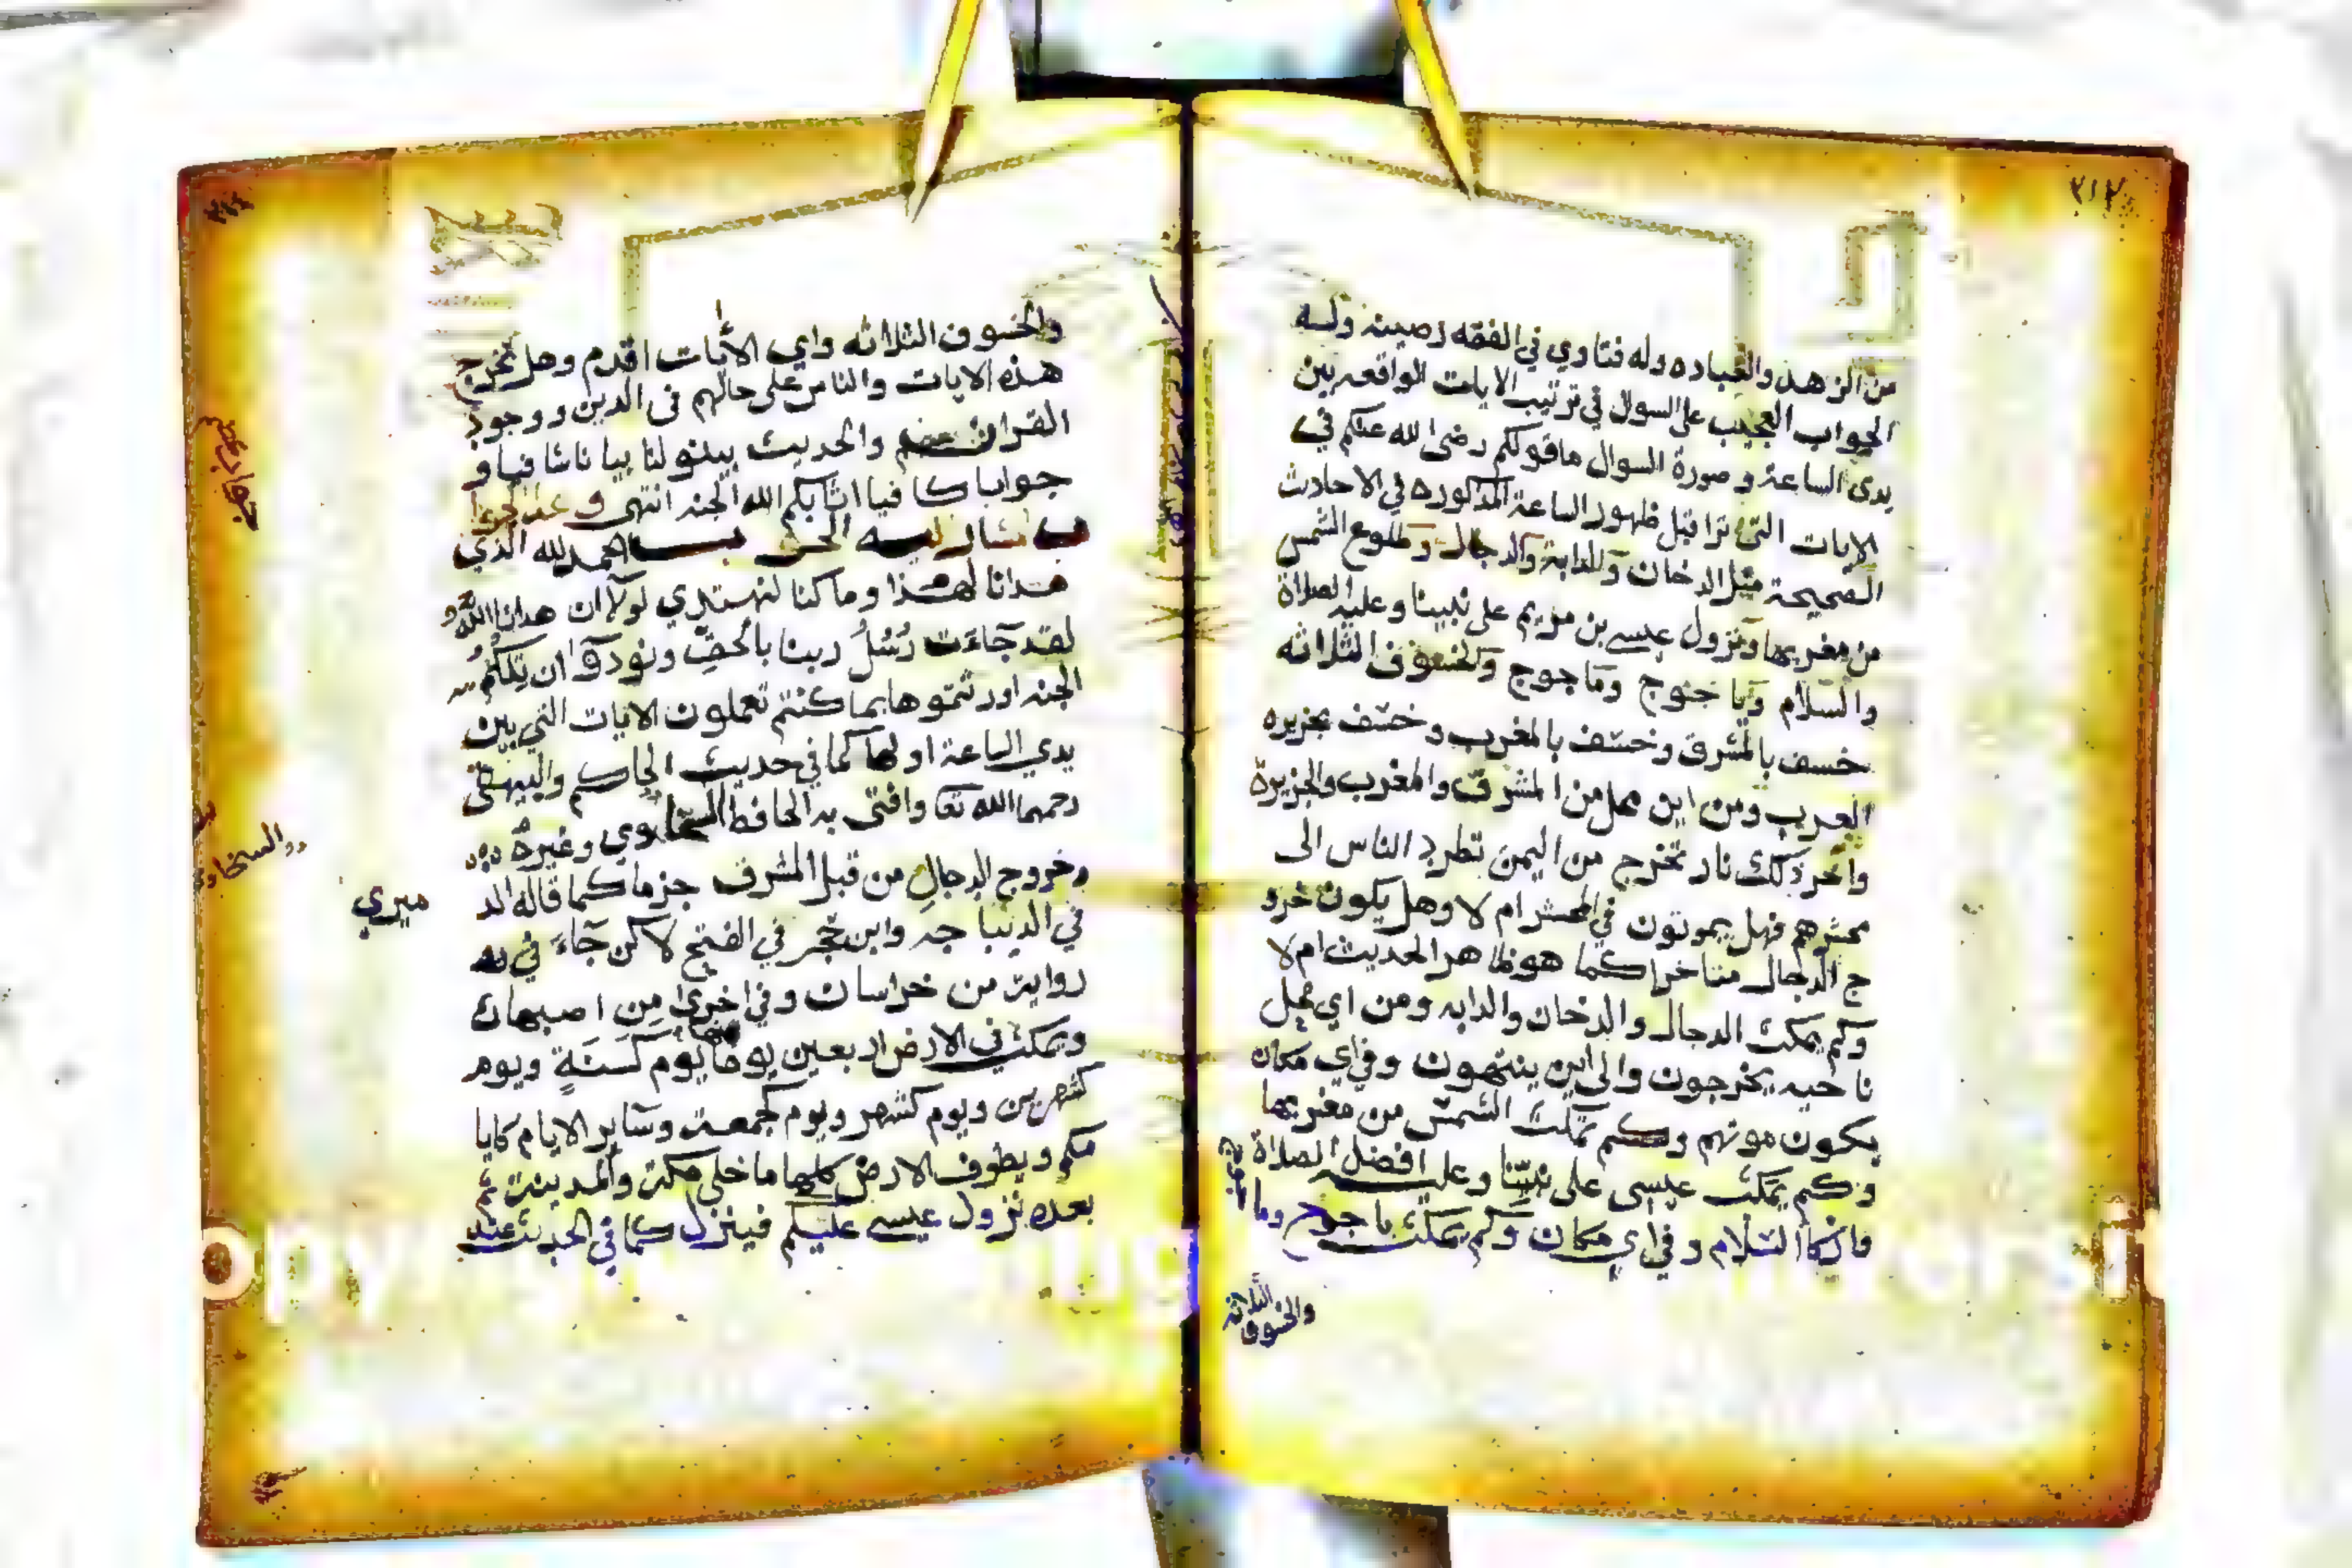 ٢١٧
من الزهد والعباده وله فتاوي في الفقه رصينه وله
الجواب العجيب على السوال في ترتيب الايات الواقعه بين
يدي الساعة وصورة السوال ما قولكم رضى الله عنكم في
الايات التى ترا قبل ظهور الساعة المذكوره في الاحاديث
الصحيحة مثل الدخان والدابة والدجال وطلوع الشمس
من مغربها ونزول عيسى بن مريم على نبينا وعليه الصلاة
والسلام ويا جوج وما جوج والخسوف الثلاثه
خسف بالمشرق وخسف بالمغرب وخسف بجزيره
العرب ومن اين محل من المشرق والمغرب والجزيرة
واخر ذلك نار تخرج من اليمن تطرد الناس الى
محشرهم فهل يموتون في المحشر ام لا وهل يكون خرو
ج الدجال متاخرا كما هو ظاهر الحديث ام لا
وكم يمكث الدجال والدخان والدابه ومن اي محل
ناحيه يخرجون والى اين ينتهون وفي اي مكان
يكون موتهم وكم تمكث الشمس من مغربها
وكم يمكث عيسى على نبينا وعليه افضل الصلاة
وازكا السلام وفي اي مكان وكم يمكث ياجوج وما
والخسوف الثلاثه
والخسوف الثلاثه واي الأيات اقدم وهل تخرج
هذه الايات والناس على حالهم في الدين ووجود
القران والحديث بينو لنا بيانا شافيا و
جوابا كافيا اثابكم الله الجنه انتهى
الحمد لله الذي
هدانا لهذا وما كنا لنهتدي لولا ان هدانا الله
لقد جاءت رُسُلُ ربنا بالحقِ ونودوا ان تلكم
الجنه اورثتموها بما كنتم تعملون الايات التي بين
يدي الساعة اولها كما في حديث الحاكم والبيهقي
رحمهما الله تعا وافتى به الحافظ السخاوي وغيره
وخروج الدجالِ من قبل المشرق جزما كما قاله الد
ميري
في الدينبا جه وابن حجر في الفتح لاكن جَاءَ في
رواية من خراسان وفي اخرى مِن اصبهان
ويمكث في الارض اربعين يوما يوم كسَنَةٍ ويوم
كشهرين ويوم كشهر ويوم كجمعة وساير الايام كايا
مكم ويطوف الارض كلها ما خلى مكة والمدينة ثم
بعده نزول عيسى عليكم فينزل كما في الحديث عند
والسخاو